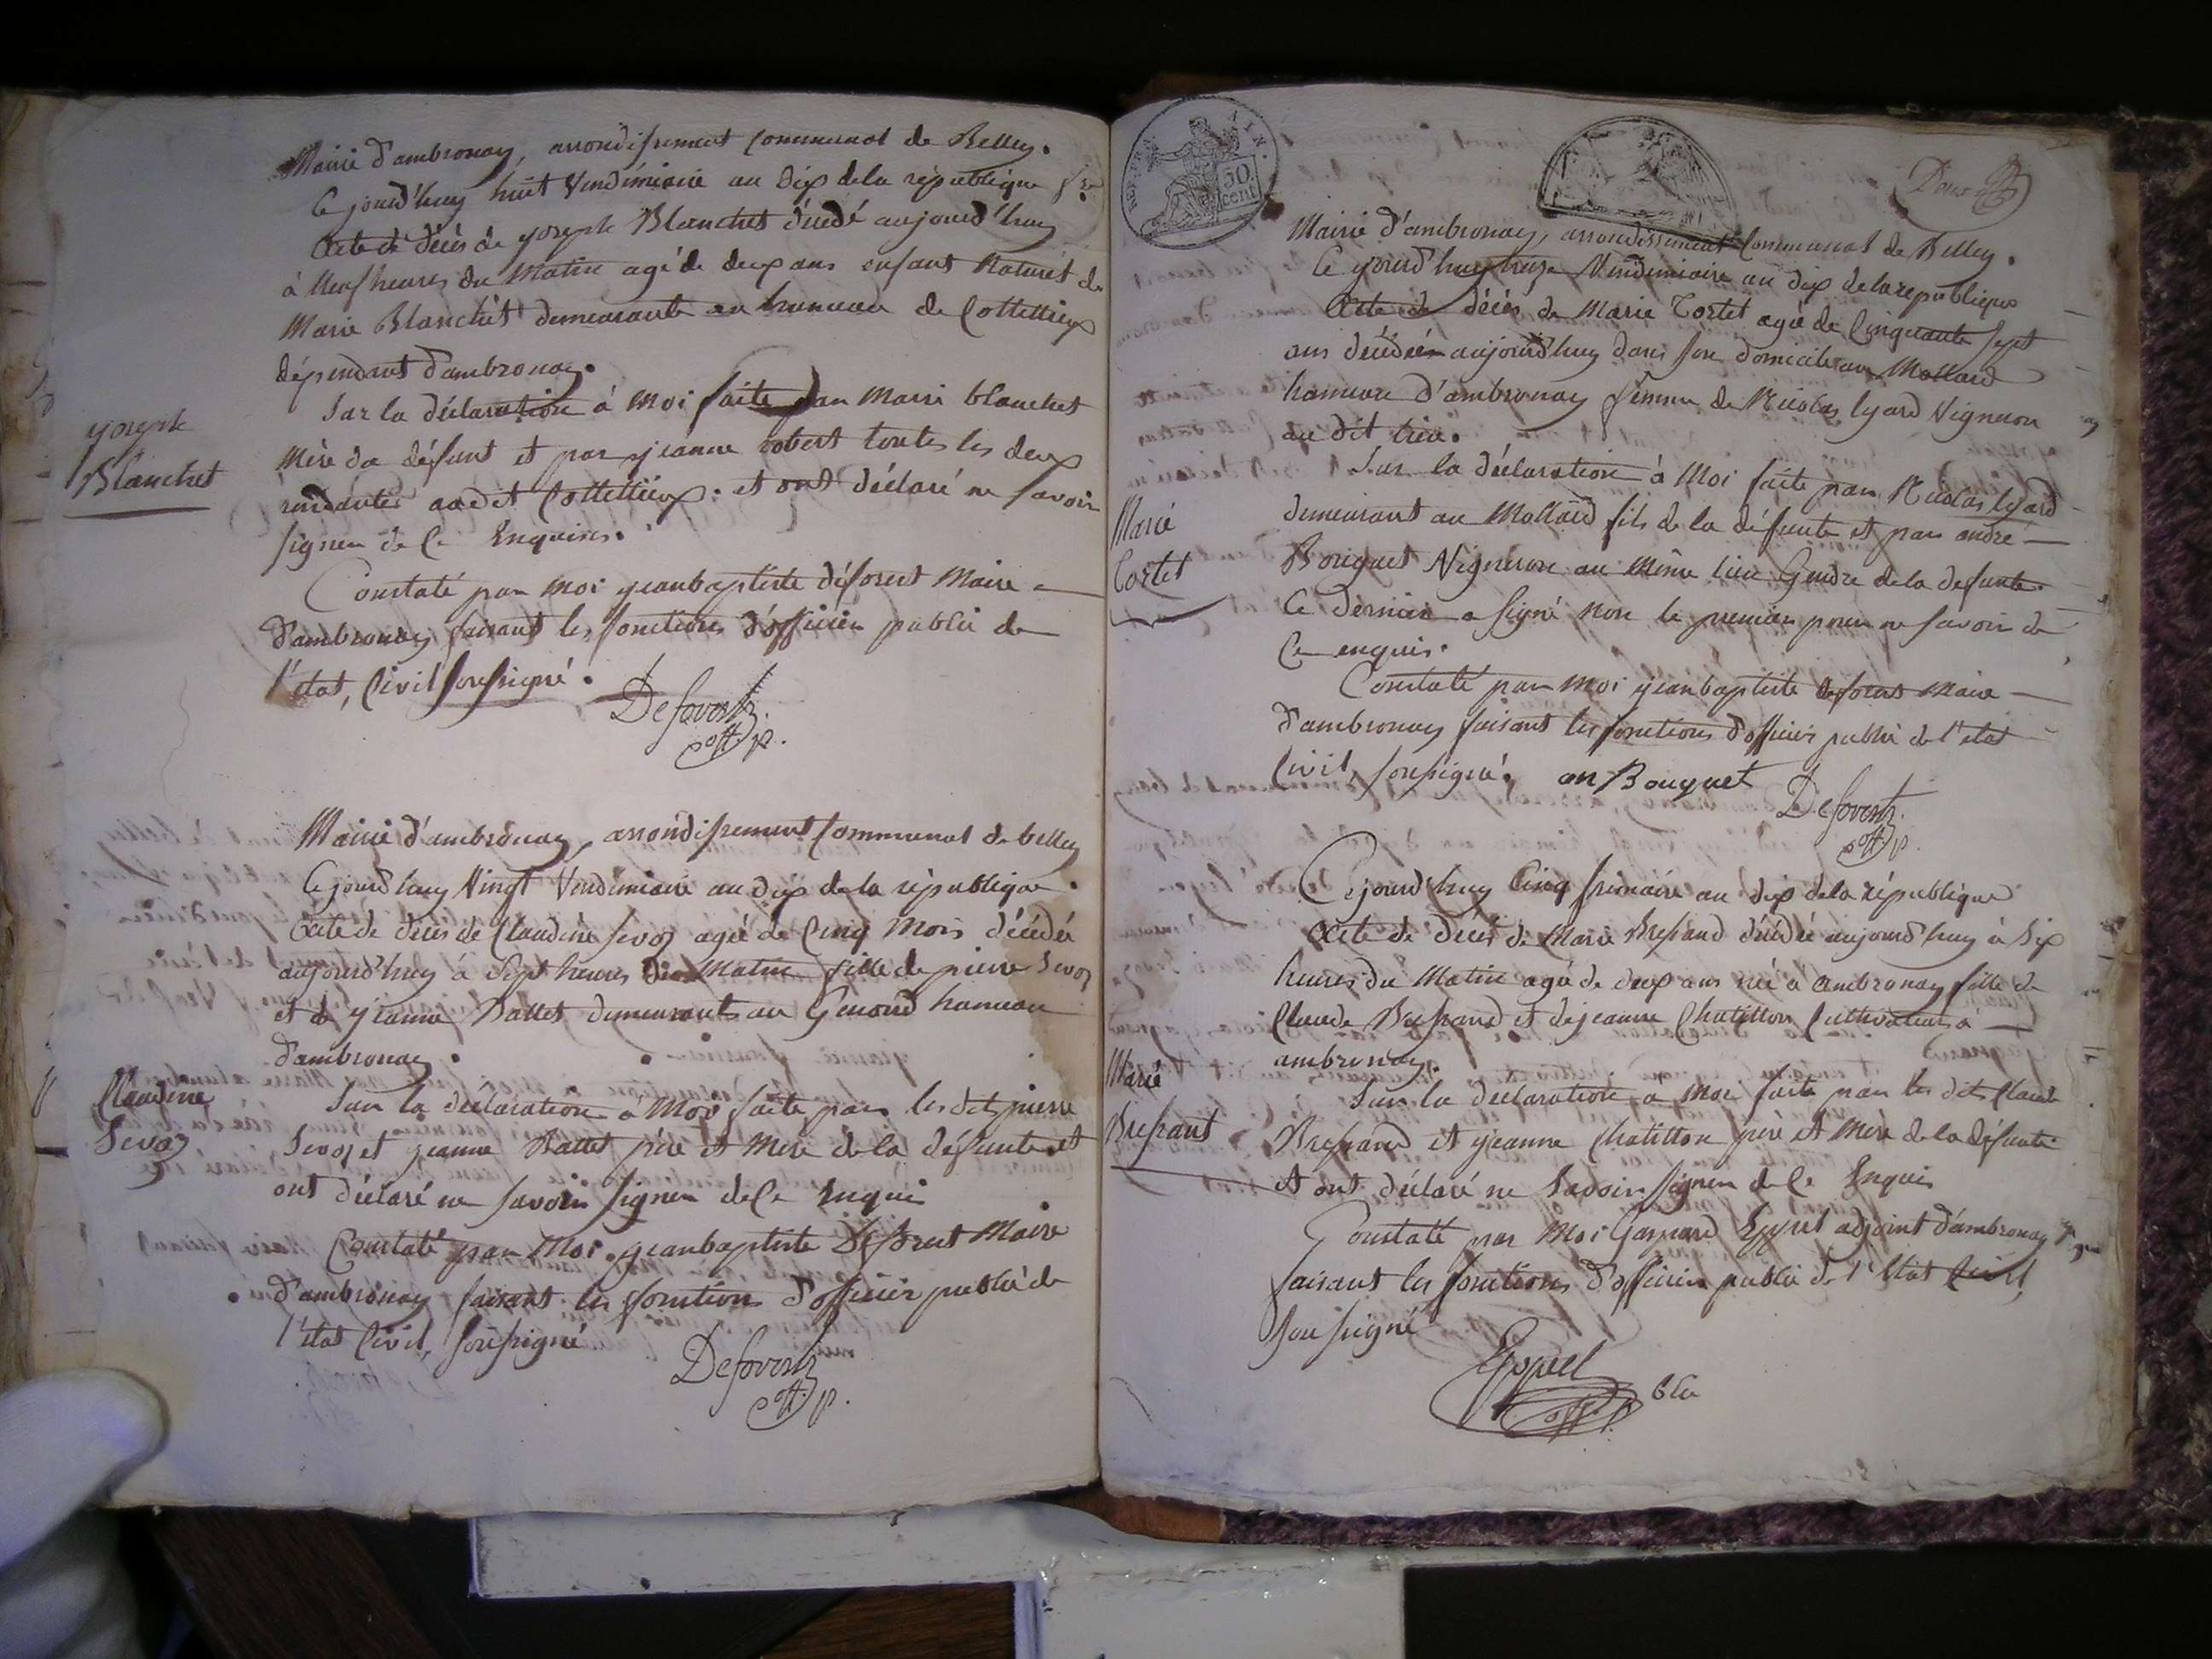 Mairie d'ambronay, arrondissement Communal de Belley.
Ce jourd'huy huit Vendémiaire an dix de la république
Acte de décés de joseph Blanchet décédé aujourd'huy
à Neuf heures du Matin agé de deux ans enfant Naturel de
Marie Blanchet demeurante au hameau de Cottettieux
dépendant d'ambronay.
Sur la déclaration à Moi faite par Marie blanchet
Mère du défunt et par jeanne robert toutes les deux
résidantes audit Cottettieux. et ont déclaré ne savoir
signer de Ce Enquises.
Constaté par Moi jeanbaptiste déforest Maire
d'ambronay faisant les fonctions d'officier public de
l'état, Civil soussigné.
Deforest
off. p.
joseph
Blanchet
Mairie d'ambronay, arrondissement Communal de belley
Cejourd'huy Vingt Vendémiaire an dix de la république.
Acte de décés de Claudine Sevoz agée de Cinq Mois décédée
aujourd'huy à Sept heures du Matin fille de pierre Sevoz
et de jeanne Ballet demeurants au Genoud hameau
d'ambronay.
Sur la déclaration à Moi faite par les dits pierre
Sevoz et jeanne Ballet père et Mère de la défunte et
ont déclaré ne savoir signer de Ce Enquis
Constaté par Moi jeanbaptiste Déforest Maire
d'ambronay faisant les fonctions d'officier public de
l'état Civil, soussigné
Deforest
off. p.
Claudine
Sevoz
AIN.
50
cent
Mairie d'ambronay, arrondissement Communal de Belley.
Ce jourd'huy treize Vendémiaire an dix de la république
Acte de décés de Marie Tortet agée de Cinquante sept
ans décédée aujourd'huy dans son domicile au Mollard
hameau d'ambronay femme de Nicolas lyard Vigneron
au dit lieu.
Sur la déclaration à Moi faite par Nicolas lyard
demeurant au Mollard fils de la défunte et par andré
Bouquet Vigneron au Même lieu Gendre de la defunte.
Ce dernier a signé non le premier pour ne savoir de
Ce enquis.
Constaté par Moi jeanbaptiste deforest Maire
d'ambronay faisant les fonctions d'officier public de l'état
Civil, soussigné. an Bouquet
Deforest
off. p.
Marie
Tortet
Cejourd'huy Cinq frimaire an dix de la république
Acte de décés de Marie Bressand décédée aujourd'huy à Six
heures du Matin agée de deux ans née à ambronay fille de
Claude Bressand et de jeanne Chatillon Cultivateurs à
ambronay.
Sur la déclaration a Moi faite par les dits Claude
Bressand et jeanne Chatillon père et Mère de la défunte
et ont déclaré ne Savoir signer de Ce Enquis
Constaté par Moi Gaspard Eyppel adjoint d'ambronay
faisant les fonctions d'officier public de l'état Civil,
Soussigné
Marie
Bressant